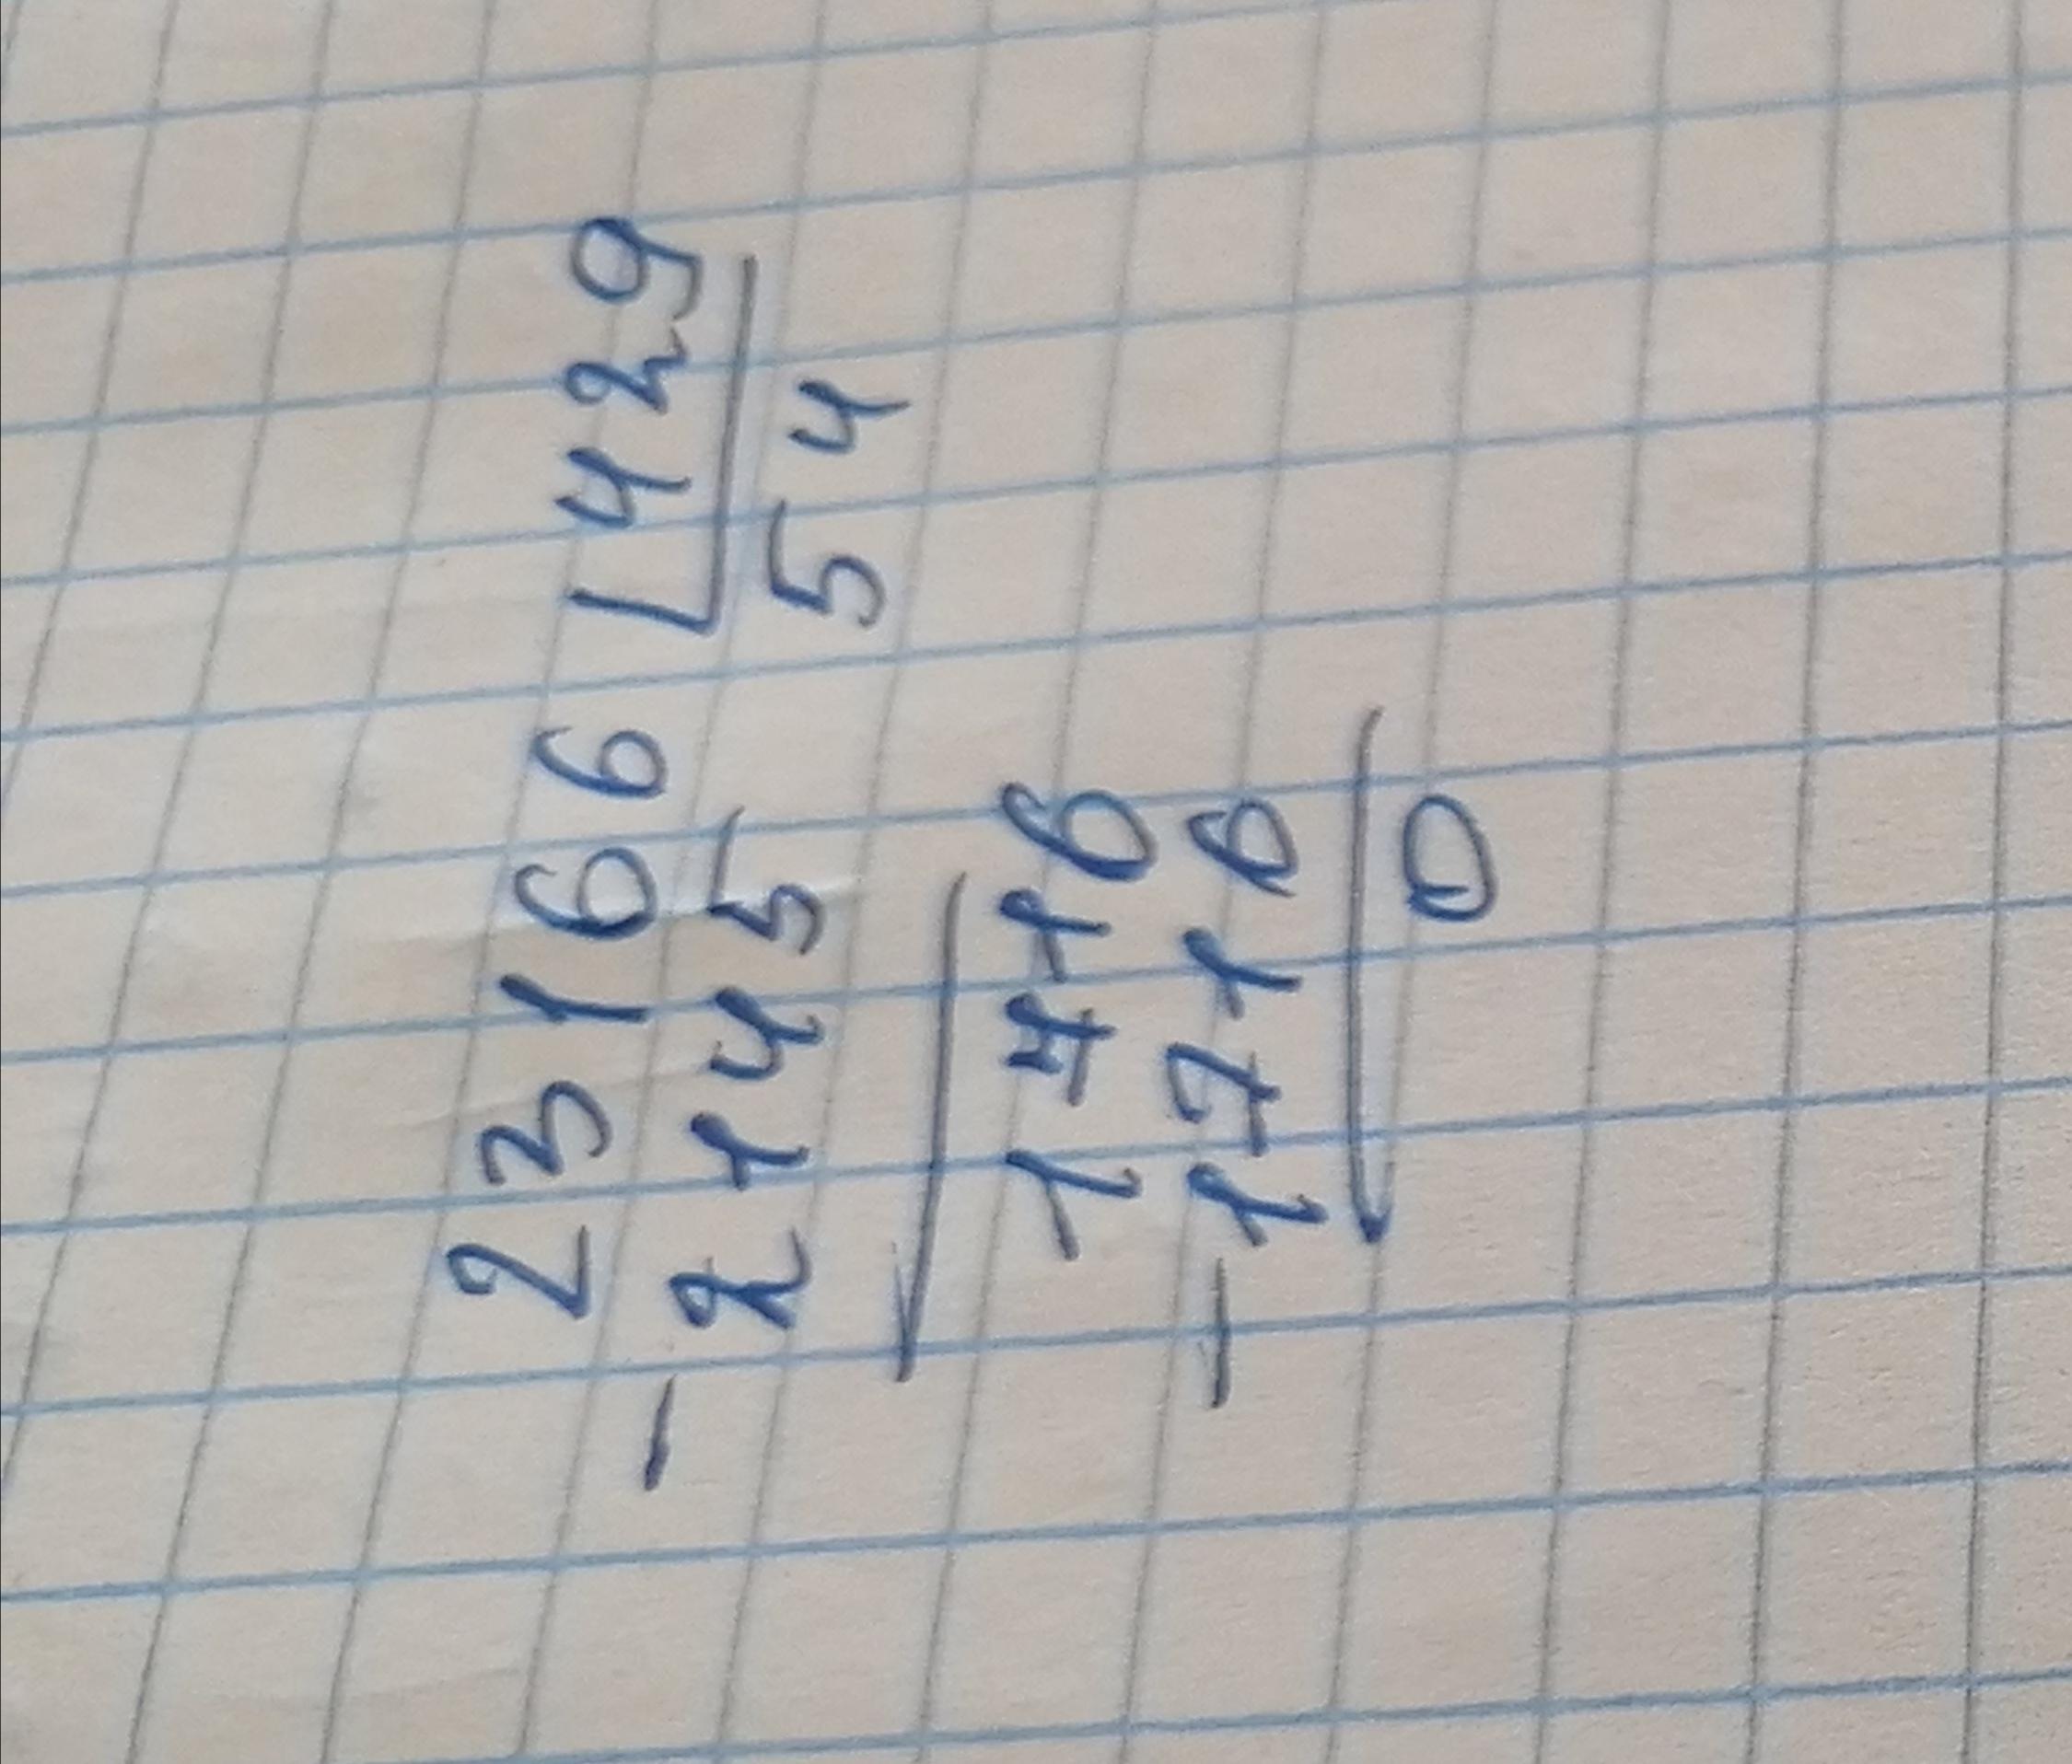 23166 429
- 2145 54
1716
- 1716
0